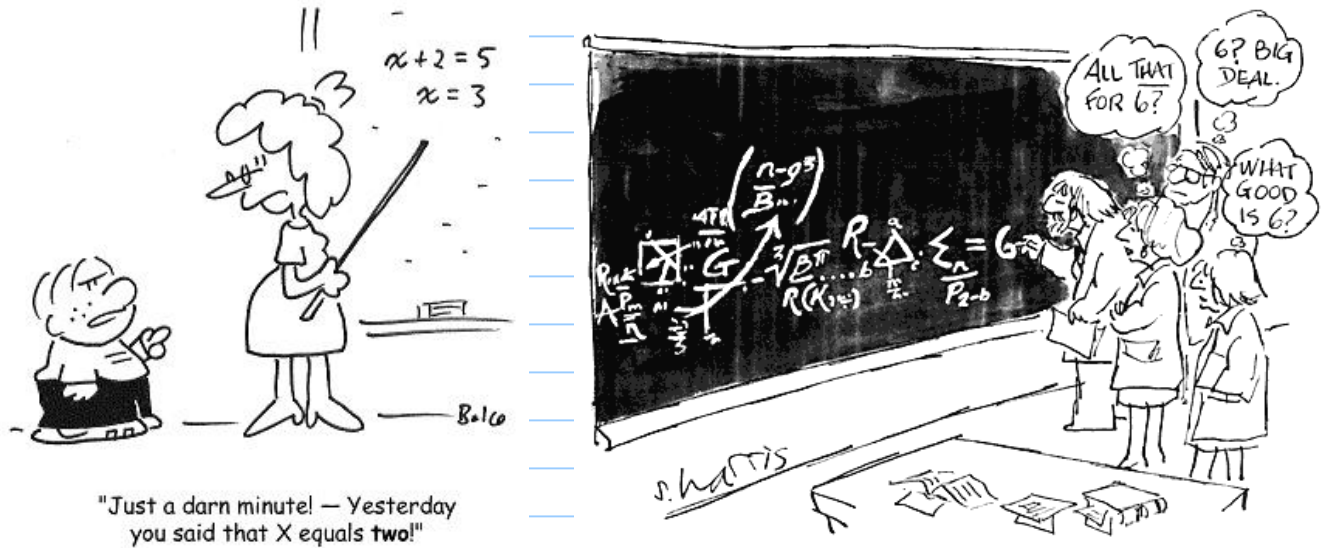 x+2=5
x=3
Balco
"Just a darn minute! — Yesterday
you said that X equals two!"
ALL THAT
FOR 6?
6? BIG
DEAL.
WHAT
GOOD
IS 6?
= 6
s.harris